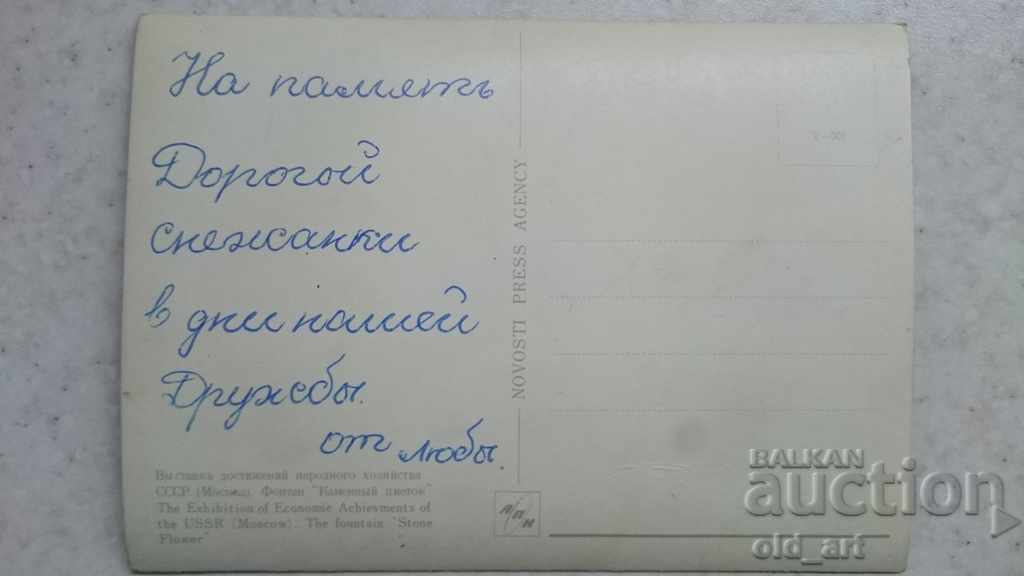 На памятъ
Дорогой
снежанки
в дни нашей
Дружбы.
от любы.
Выставка достижений народного хозяйства
СССР (Москва). Фонтан "Каменный цветок"
The Exhibition of Economic Achievments of
the USSR (Moscow). The fountain "Stone
Flower"
NOVOSTI PRESS AGENCY
АПН
BALKAN
auction
old_art